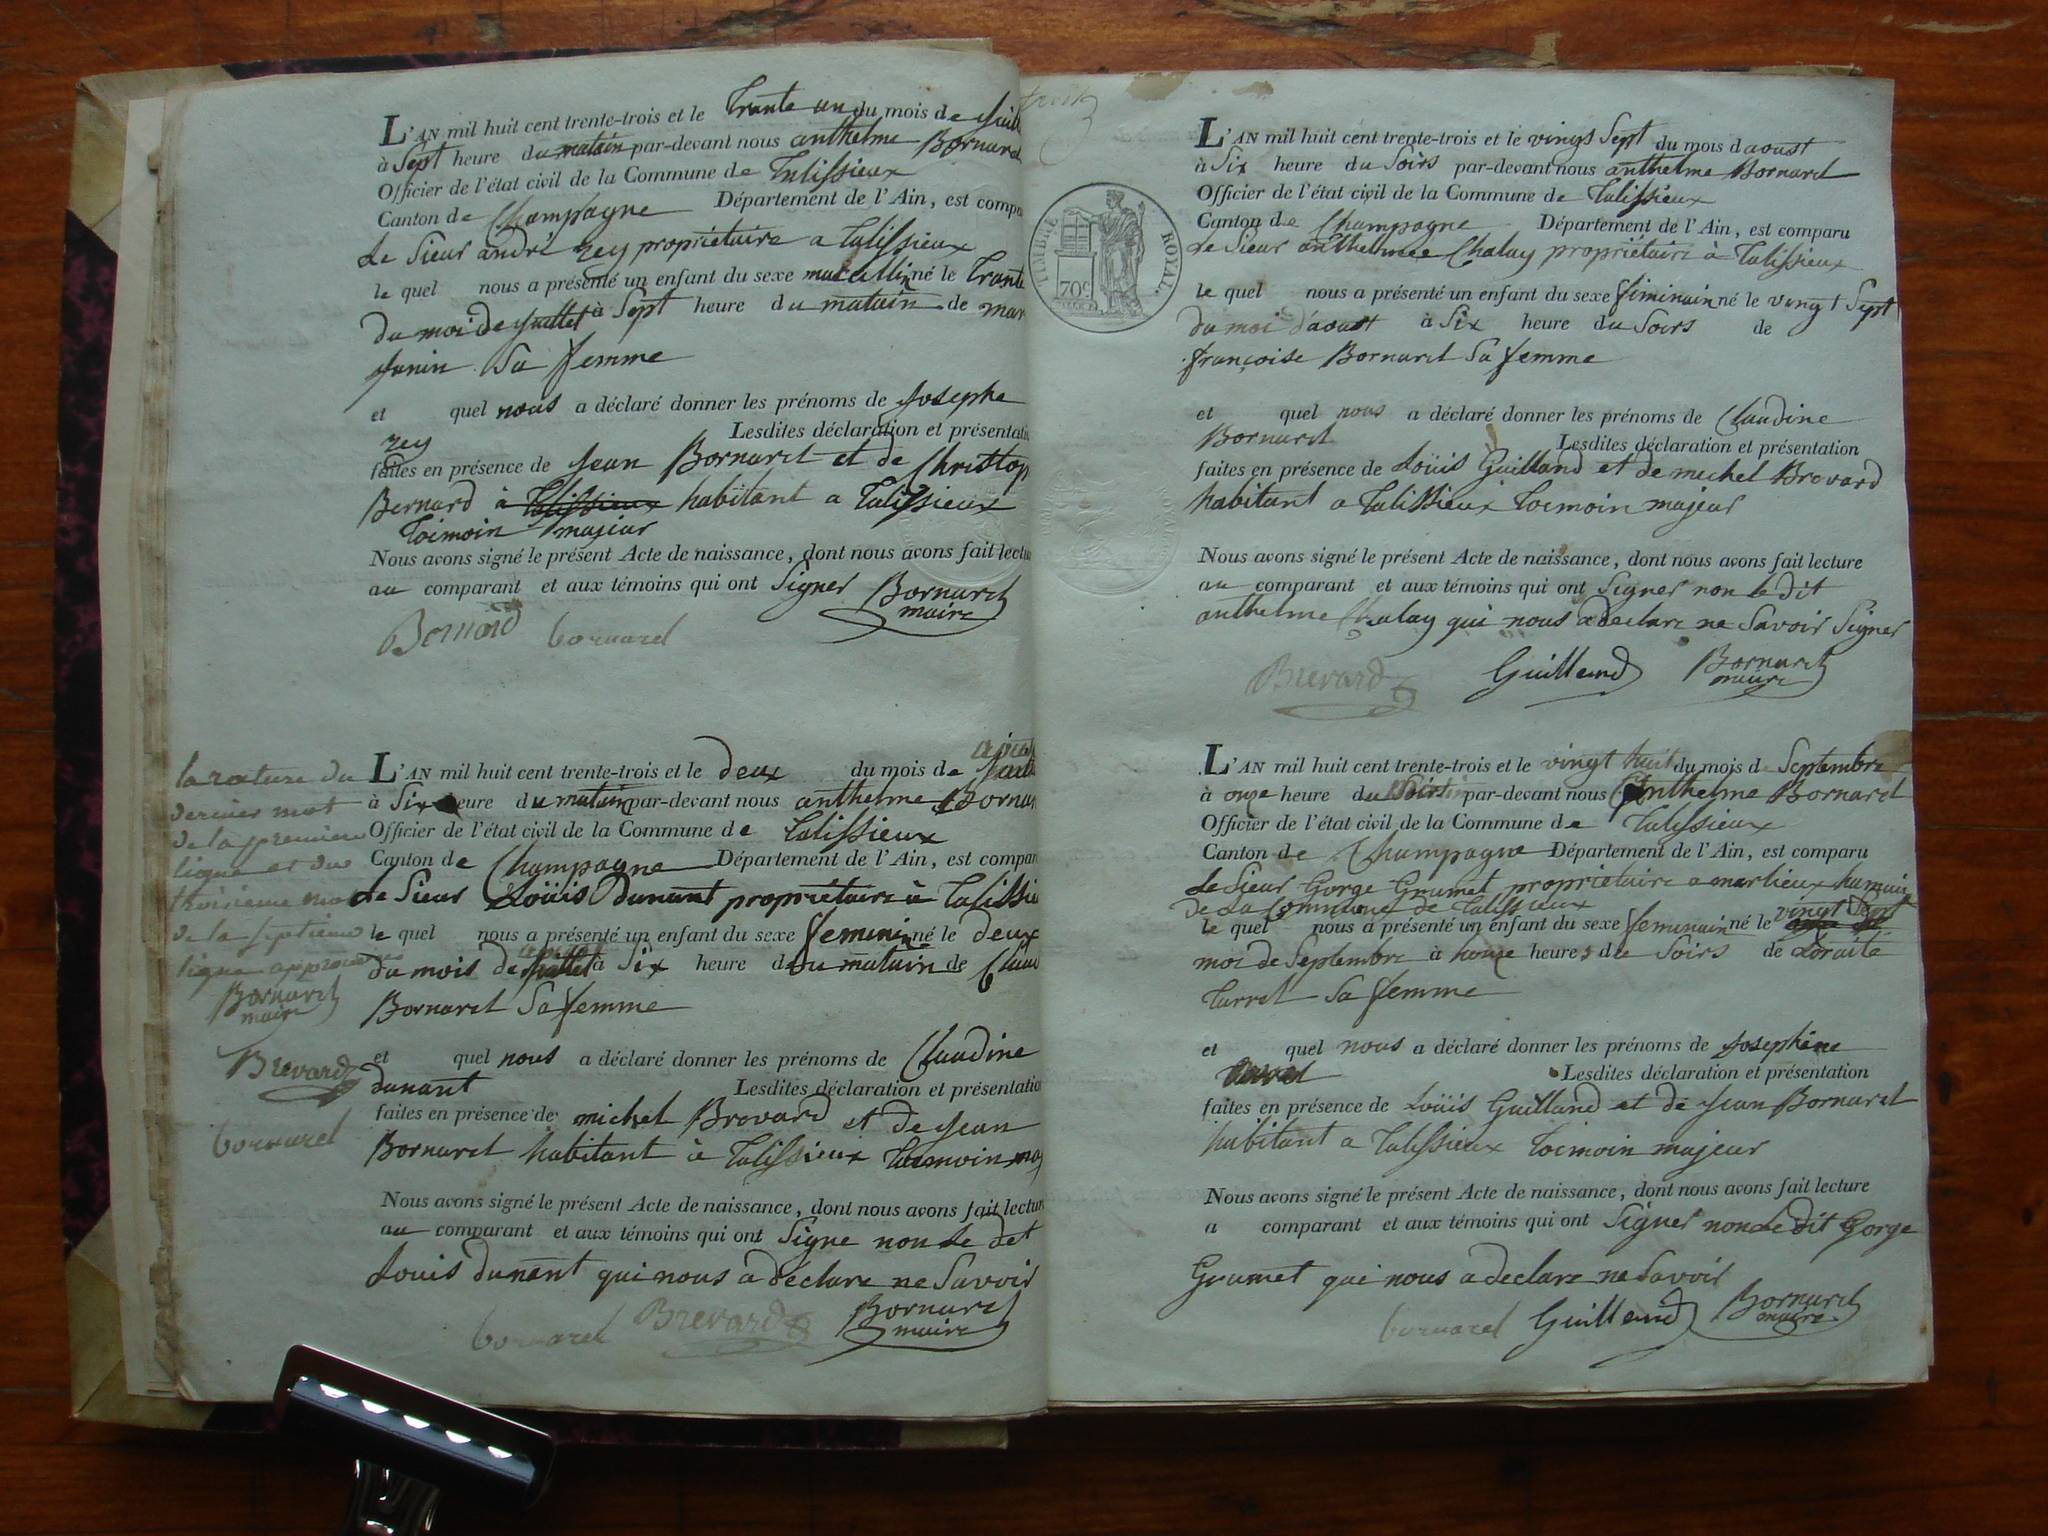 L'AN mil huit cent trente-trois et le Trante un du mois de
à Sept heure du matain par-devant nous anthelme Bornard
Officier de l'état civil de la Commune de Talissieux
Canton de Champagne Département de l'Ain, est
Le Sieur andré rey propriétaire a Talissieux
le quel nous a présenté un enfant du sexe né le Trante
du moi de Juillet à Sept heure du matain de mar
Janin Sa femme
et quel nous a déclaré donner les prénoms de Josephe
rey Lesdites déclaration et
faites en présence de Jean Bornard et de Christop
Bernard à Talissieux habitant a Talissieux
Toimoin majeur
Nous avons signé le présent Acte de naissance, dont nous avons fait
au comparant et aux témoins qui ont Signer Bornard
maire
Bornard bornard
L'AN mil huit cent trente-trois et le deux du mois de
à Six heure du matain par-devant nous anthelme
Officier de l'état civil de la Commune de Talissieux
Canton de Champagne Département de l'Ain, est
Le Sieur Loüis Dunant propriétaire à
le quel nous a présenté un enfant du sexe feminin né le deux
du mois de à Six heure du matain de
Bornard Sa femme
et quel nous a déclaré donner les prénoms de Claudine
dunant Lesdites déclaration et
faites en présence de michel Brevard et de Jean
Bornard habitant à Talissieux Toemoin
Nous avons signé le présent Acte de naissance, dont nous avons fait
au comparant et aux témoins qui ont Signe non Le det
Louis dunant qui nous a déclare ne Savoir
bornard Brevard Bornard
maire
la rature du
dernier mot
de la première
ligne et du
troisieme mot
de la septieme
ligne
Bornard
maire
Brevard
bornard
TIMBRE ROYAL
70c
L'AN mil huit cent trente-trois et le vingt Sept du mois daoust
à Six heure du Soirs par-devant nous anthelme Bornard
Officier de l'état civil de la Commune de Talissieux
Canton de Champagne Département de l'Ain, est comparu
Le Sieur Chalay propriétaire à Talissieux
le quel nous a présenté un enfant du sexe né le vingt Sept
du moi d'aoust à Six heure du Soirs de
françoise Bornard Sa femme
et quel nous a déclaré donner les prénoms de Claudine
Bornard Lesdites déclaration et présentation
faites en présence de Loüis Guilland et de michel Brevard
habitant a Talissieux Toemoin majeur
Nous avons signé le présent Acte de naissance, dont nous avons fait lecture
au comparant et aux témoins qui ont Signer non le dit
anthelme Chalay qui nous a declare ne Savoir Signer
Brevard Guilland Bornard
maire
L'AN mil huit cent trente-trois et le vingt huit du mois de Septembre
à onze heure du par-devant nous Anthelme Bornard
Officier de l'état civil de la Commune de Talissieux
Canton de Champagne Département de l'Ain, est comparu
Le Sieur Gorge Grumet propriétaire a marlieux
de La Commune de Talissieux
le quel nous a présenté un enfant du sexe né le vingt
moi de Septembre à honze heures de Soirs de
Sa femme
et quel nous a déclaré donner les prénoms de Josephine
Lesdites déclaration et présentation
faites en présence de Loüis Guilland et de Jean Bornard
habitant a Talissieux Toimoin majeur
Nous avons signé le présent Acte de naissance, dont nous avons fait lecture
a comparant et aux témoins qui ont Signer non Le dit Gorge
Grumet qui nous a declare ne Savoir
bornard Guilland Bornard
maire